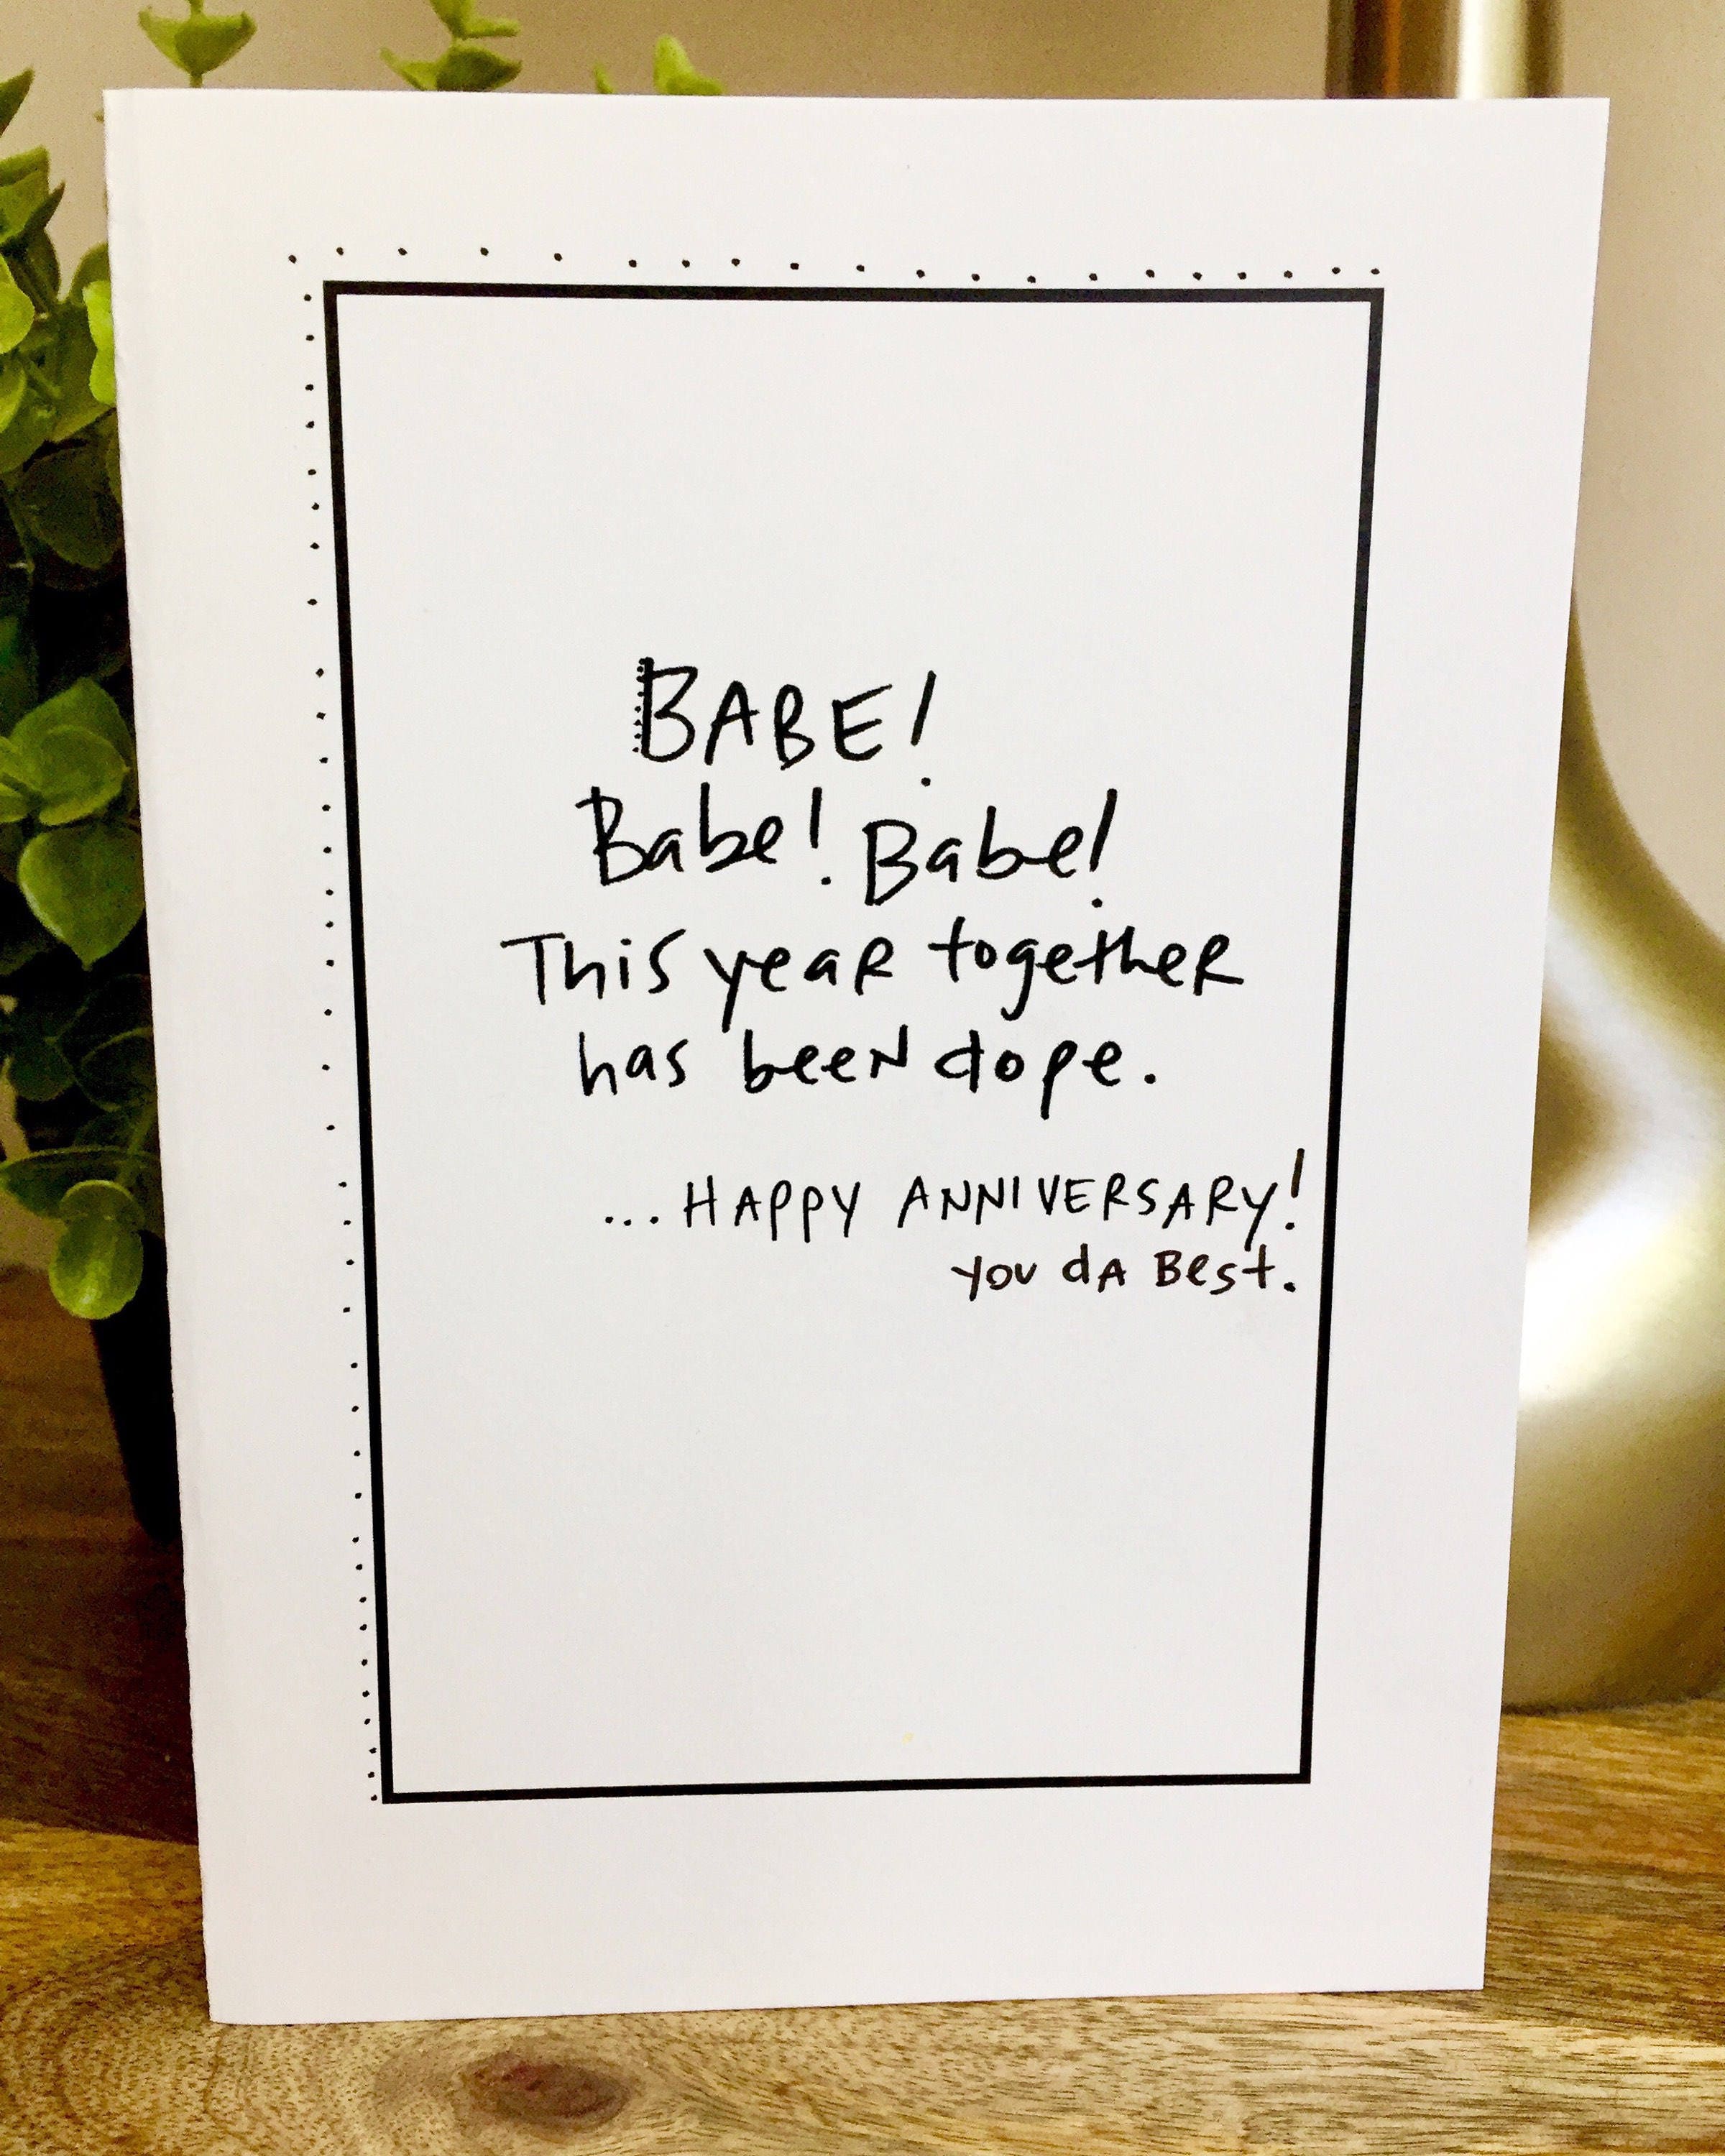 BABE!
Babe! Babe!
This year together
has been dope.
...HAPPY ANNIVERSARY!
you dA Best.